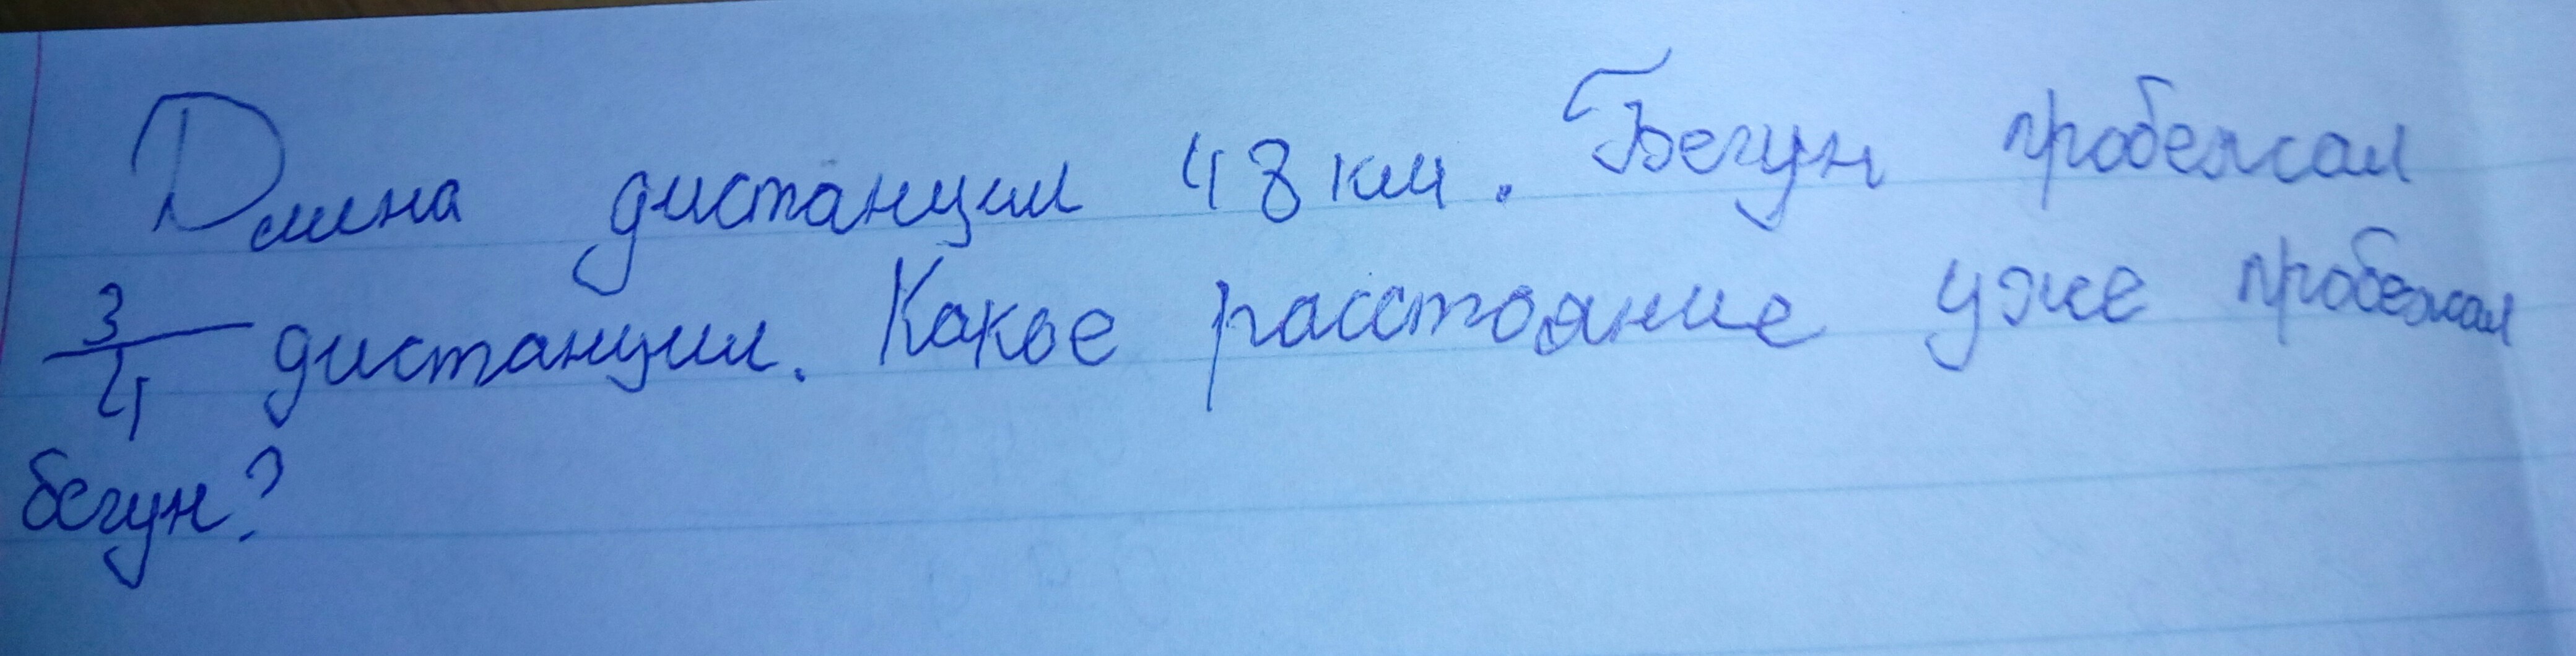 Длина дистанции 48 км. Бегун пробежал
3/4 дистанции. Какое расстояние уже пробежал
бегун?